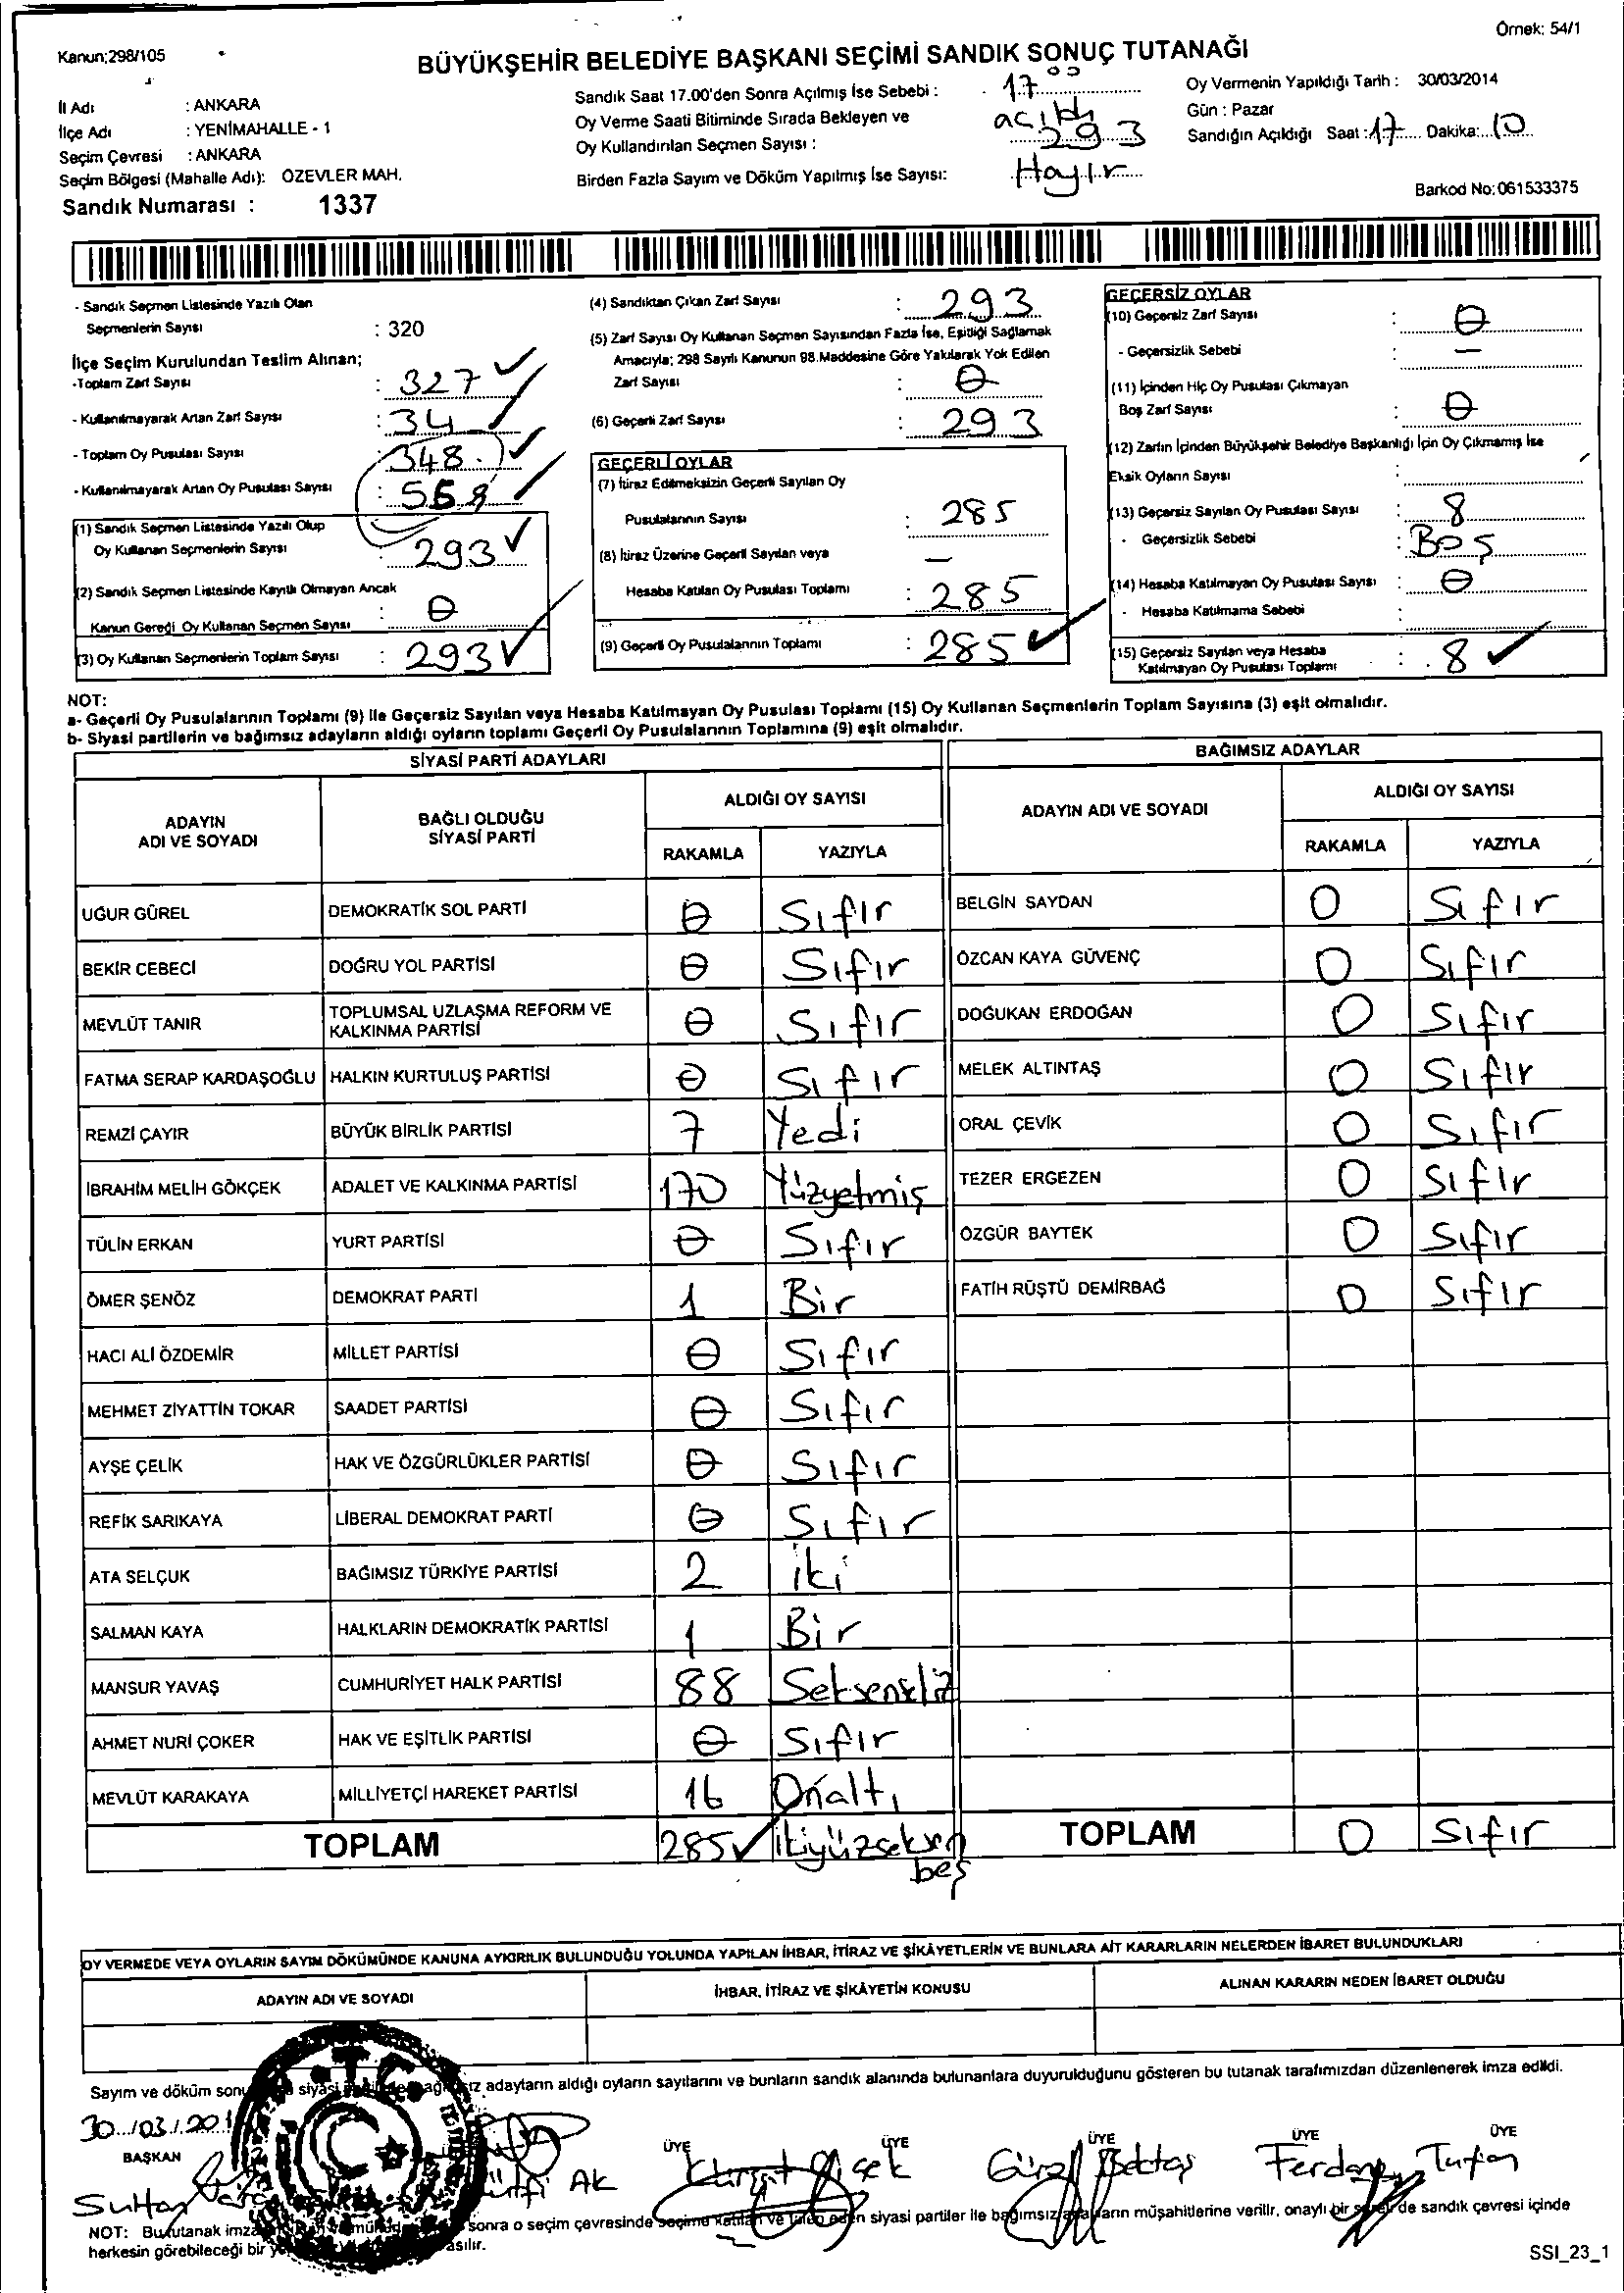 Örnek: 54/1
Kanun;298/105
BÜYÜKŞEHİR BELEDİYE BAŞKANI SEÇİMİ SANDIK SONUÇ TUTANAĞI
İl Adı : ANKARA
İlçe Adı : YENİMAHALLE - 1
Seçim Çevresi : ANKARA
Seçim Bölgesi (Mahalle Adı): ÖZEVLER MAH.
Sandık Numarası : 1337
Sandık Saat 17.00'den Sonra Açılmış İse Sebebi : 17 00
Oy Verme Saati Bitiminde Sırada Bekleyen ve açıldı
Oy Kullandırılan Seçmen Sayısı : 293
Birden Fazla Sayım ve Döküm Yapılmış İse Sayısı: Hayır
Oy Vermenin Yapıldığı Tarih : 30/03/2014
Gün : Pazar
Sandığın Açıldığı Saat : 17 Dakika: 10
Barkod No: 061533375
- Sandık Seçmen Listesinde Yazılı Olan
Seçmenlerin Sayısı : 320
İlçe Seçim Kurulundan Teslim Alınan;
-Toplam Zarf Sayısı : 327
- Kullanılmayarak Artan Zarf Sayısı : 34
- Toplam Oy Pusulası Sayısı : 348
- Kullanılmayarak Artan Oy Pusulası Sayısı :
(1) Sandık Seçmen Listesinde Yazılı Olup
Oy Kullanan Seçmenlerin Sayısı : 293
(2) Sandık Seçmen Listesinde Kayıtlı Olmayan Ancak
Kanun Gereği Oy Kullanan Seçmen Sayısı : 0
(3) Oy Kullanan Seçmenlerin Toplam Sayısı : 293
(4) Sandıktan Çıkan Zarf Sayısı : 293
(5) Zarf Sayısı Oy Kullanan Seçmen Sayısından Fazla İse, Eşitliği Sağlamak
Amacıyla; 298 Sayılı Kanunun 98.Maddesine Göre Yakılarak Yok Edilen
Zarf Sayısı : 0
(6) Geçerli Zarf Sayısı : 293
GEÇERLİ OYLAR
(7) İtiraz Edilmeksizin Geçerli Sayılan Oy
Pusulalarının Sayısı : 285
(8) İtiraz Üzerine Geçerli Sayılan veya —
Hesaba Katılan Oy Pusulası Toplamı : 285
(9) Geçerli Oy Pusulalarının Toplamı : 285
GEÇERSİZ OYLAR
(10) Geçersiz Zarf Sayısı : 0
- Geçersizlik Sebebi : —
(11) İçinden Hiç Oy Pusulası Çıkmayan
Boş Zarf Sayısı : 0
(12) Zarfın İçinden Büyükşehir Belediye Başkanlığı İçin Oy Çıkmamış İse
Eksik Oyların Sayısı :
(13) Geçersiz Sayılan Oy Pusulası Sayısı : 8
- Geçersizlik Sebebi : Boş
(14) Hesaba Katılmayan Oy Pusulası Sayısı : 0
- Hesaba Katılmama Sebebi :
(15) Geçersiz Sayılan veya Hesaba
Katılmayan Oy Pusulası Toplamı : 8
NOT:
a- Geçerli Oy Pusulalarının Toplamı (9) ile Geçersiz Sayılan veya Hesaba Katılmayan Oy Pusulası Toplamı (15) Oy Kullanan Seçmenlerin Toplam Sayısına (3) eşit olmalıdır.
b- Siyasi partilerin ve bağımsız adayların aldığı oyların toplamı Geçerli Oy Pusulalarının Toplamına (9) eşit olmalıdır.
SİYASİ PARTİ ADAYLARI
ADAYIN ADI VE SOYADI
BAĞLI OLDUĞU SİYASİ PARTİ
ALDIĞI OY SAYISI
RAKAMLA YAZIYLA
UĞUR GÜREL DEMOKRATİK SOL PARTİ 0 Sıfır
BEKİR CEBECİ DOĞRU YOL PARTİSİ 0 Sıfır
MEVLÜT TANIR TOPLUMSAL UZLAŞMA REFORM VE KALKINMA PARTİSİ 0 Sıfır
FATMA SERAP KARDAŞOĞLU HALKIN KURTULUŞ PARTİSİ 0 Sıfır
REMZİ ÇAYIR BÜYÜK BİRLİK PARTİSİ 7 Yedi
İBRAHİM MELİH GÖKÇEK ADALET VE KALKINMA PARTİSİ 170 Yüzyetmiş
TÜLİN ERKAN YURT PARTİSİ 0 Sıfır
ÖMER ŞENÖZ DEMOKRAT PARTİ 1 Bir
HACI ALİ ÖZDEMİR MİLLET PARTİSİ 0 Sıfır
MEHMET ZİYATTİN TOKAR SAADET PARTİSİ 0 Sıfır
AYŞE ÇELİK HAK VE ÖZGÜRLÜKLER PARTİSİ 0 Sıfır
REFİK SARIKAYA LİBERAL DEMOKRAT PARTİ 0 Sıfır
ATA SELÇUK BAĞIMSIZ TÜRKİYE PARTİSİ 2 iki
SALMAN KAYA HALKLARIN DEMOKRATİK PARTİSİ 1 Bir
MANSUR YAVAŞ CUMHURİYET HALK PARTİSİ 88 Seksensekiz
AHMET NURİ ÇOKER HAK VE EŞİTLİK PARTİSİ 0 Sıfır
MEVLÜT KARAKAYA MİLLİYETÇİ HAREKET PARTİSİ 16 Onaltı
TOPLAM 285 ikiyüzseksen
beş
BAĞIMSIZ ADAYLAR
ADAYIN ADI VE SOYADI
ALDIĞI OY SAYISI
RAKAMLA YAZIYLA
BELGİN SAYDAN 0 Sıfır
ÖZCAN KAYA GÜVENÇ 0 Sıfır
DOĞUKAN ERDOĞAN 0 Sıfır
MELEK ALTINTAŞ 0 Sıfır
ORAL ÇEVİK 0 Sıfır
TEZER ERGEZEN 0 Sıfır
ÖZGÜR BAYTEK 0 Sıfır
FATİH RÜŞTÜ DEMİRBAĞ 0 Sıfır
TOPLAM 0 Sıfır
OY VERMEDE VEYA OYLARIN SAYIM DÖKÜMÜNDE KANUNA AYKIRILIK BULUNDUĞU YOLUNDA YAPILAN İHBAR, İTİRAZ VE ŞİKÂYETLERİN VE BUNLARA AİT KARARLARIN NELERDEN İBARET BULUNDUKLARI
ADAYIN ADI VE SOYADI İHBAR, İTİRAZ VE ŞİKÂYETİN KONUSU ALINAN KARARIN NEDEN İBARET OLDUĞU
Sayım ve döküm siyasi adayların aldığı oyların sayılarını ve bunların sandık alanında bulunanlara duyurulduğunu gösteren bu tutanak tarafımızdan düzenlenerek imza edildi.
T.C.
30/03/201
BAŞKAN ÜYE ÜYE ÜYE ÜYE ÜYE
Sultan Ak Kürşat Çiçek Gürel Bektaş Ferdane Turan
NOT: Bu tutanak sonra o seçim çevresinde seçime katılan ve talep eden siyasi partiler ile bağımsız adayların müşahitlerine verilir, onaylı bir sureti de sandık çevresi içinde
herkesin görebileceği bir asılır.
SSI_23_1